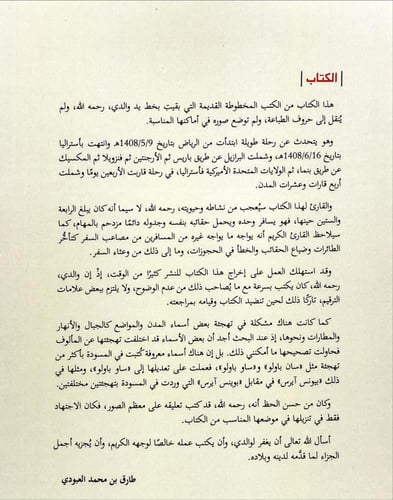 الكتاب
هذا الكتاب من الكتب المخطوطة القديمة التي بقيت بخط يد والدي، رحمه الله، ولم
يُنقل إلى حروف الطباعة، ولم توضع صوره في أماكنها المناسبة.
وهو يتحدث عن رحلة طويلة ابتدأت من الرياض بتاريخ 1408/5/9هـ وانتهت بأستراليا
بتاريخ 1408/6/16هـ، وشملت البرازيل عن طريق باريس ثم الأرجنتين ثم فنزويلا ثم المكسيك
عن طريق بنما، ثم الولايات المتحدة الأميركية فأستراليا، في رحلة قاربت الأربعين يومًا وشملت
أربع قارات وعشرات المدن.
والقارئ لهذا الكتاب سيُعجب من نشاطه وحيويته، رحمه الله، لا سيما أنه كان يبلغ الرابعة
والستين حينها، فهو يسافر وحده ويحمل حقائبه بنفسه وجدوله دائمًا مزدحم بالمهام، كما
سيلاحظ القارئ الكريم أنه يواجه ما يواجه غيره من المسافرين من مصاعب السفر كتأخُّر
الطائرات وضياع الحقائب والخطأ في الحجوزات، وما إلى ذلك من وعثاء السفر.
وقد استهلك العمل على إخراج هذا الكتاب للنشر كثيرًا من الوقت، إذْ إن والدي،
رحمه الله، كان يكتب بسرعة مع ما يُصاحب ذلك من عدم الوضوح، ولا يلتزم ببعض علامات
الترقيم، تاركًا ذلك لحين تنضيد الكتاب وقيامه بمراجعته.
كما كانت هناك مشكلة في تهجئة بعض أسماء المدن والمواضع كالجبال والأنهار
والمطارات ونحوها، إذ عند البحث أجد أن بعض الأسماء قد اختلفت تهجئتها عن المألوف
فحاولت تصحيحها ما أمكنني ذلك. بل إن هناك أسماء معروفة كُتبت في المسودة بأكثر من
تهجئة مثل «سان باولو» و«ساو باولو»، فعملت على تعديلها إلى «ساو باولو»، ومثلها في
ذلك «بيونس آيرس» في مقابل «بوينس آيرس» التي وردت في المسودة بتهجئتين مختلفتين.
وكان من حسن الحظ أنه، رحمه الله، قد كتب تعليقه على معظم الصور، فكان الاجتهاد
فقط في تنزيلها في موضعها المناسب من الكتاب.
أسأل الله تعالى أن يغفر لوالدي، وأن يكتب عمله خالصًا لوجهه الكريم، وأن يُجزيه أجمل
الجزاء لما قدَّمه لدينه وبلاده.
طارق بن محمد العبودي